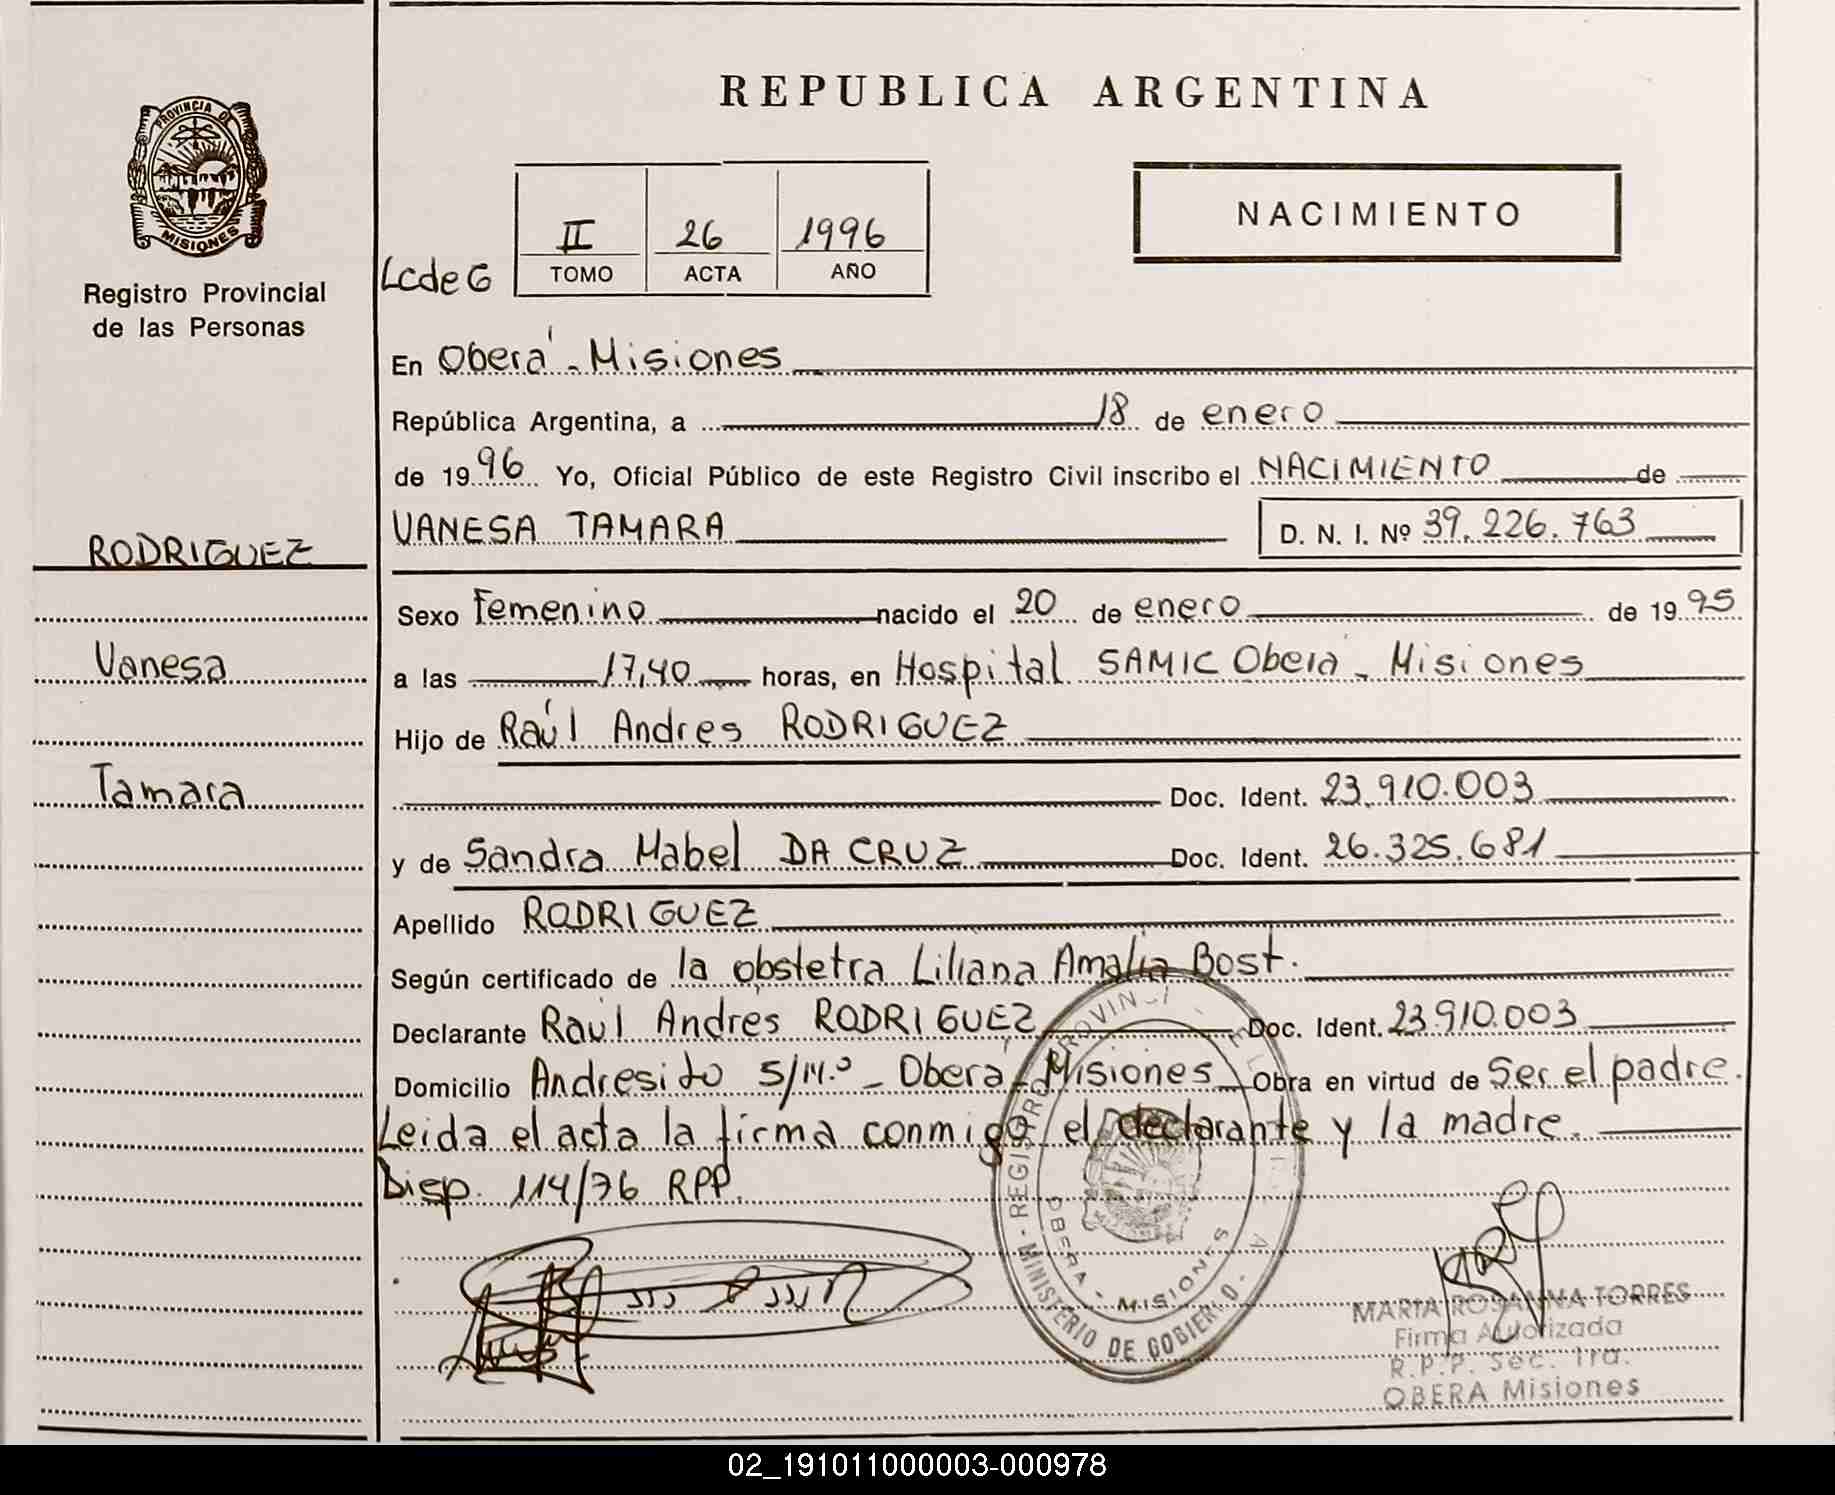 REPUBLICA ARGENTINA
PROVINCIA DE
MISIONES
Registro Provincial
de las Personas
LcdeG
II 26 1996
TOMO ACTA AÑO
NACIMIENTO
En Oberá - Misiones
República Argentina, a 18 de enero
de 1996 Yo, Oficial Público de este Registro Civil inscribo el NACIMIENTO de
VANESA TAMARA D. N. I. Nº 39.226.763
RODRIGUEZ
Sexo Femenino nacido el 20 de enero de 1995
Vanesa
a las 17,40 horas, en Hospital SAMIC Oberá - Misiones
Hijo de Raúl Andres RODRIGUEZ
Tamara
Doc. Ident. 23.910.003
y de Sandra Mabel DA CRUZ Doc. Ident. 26.325.681
Apellido RODRIGUEZ
Según certificado de la obstetra Liliana Amalia Bost.
Declarante Raúl Andrés RODRIGUEZ Doc. Ident. 23.910.003
Domicilio Andresito S/Nº - Oberá - Misiones Obra en virtud de Ser el padre.
Leida el acta la firma conmigo el declarante y la madre.
Disp. 114/76 RPP.
OBERA - MISIONES
MINISTERIO DE GOBIERNO -
MARIA ROSANNA TORRES
Firma Autorizada
R.P.P. Sec. 1ra.
OBERA Misiones
02_191011000003-000978